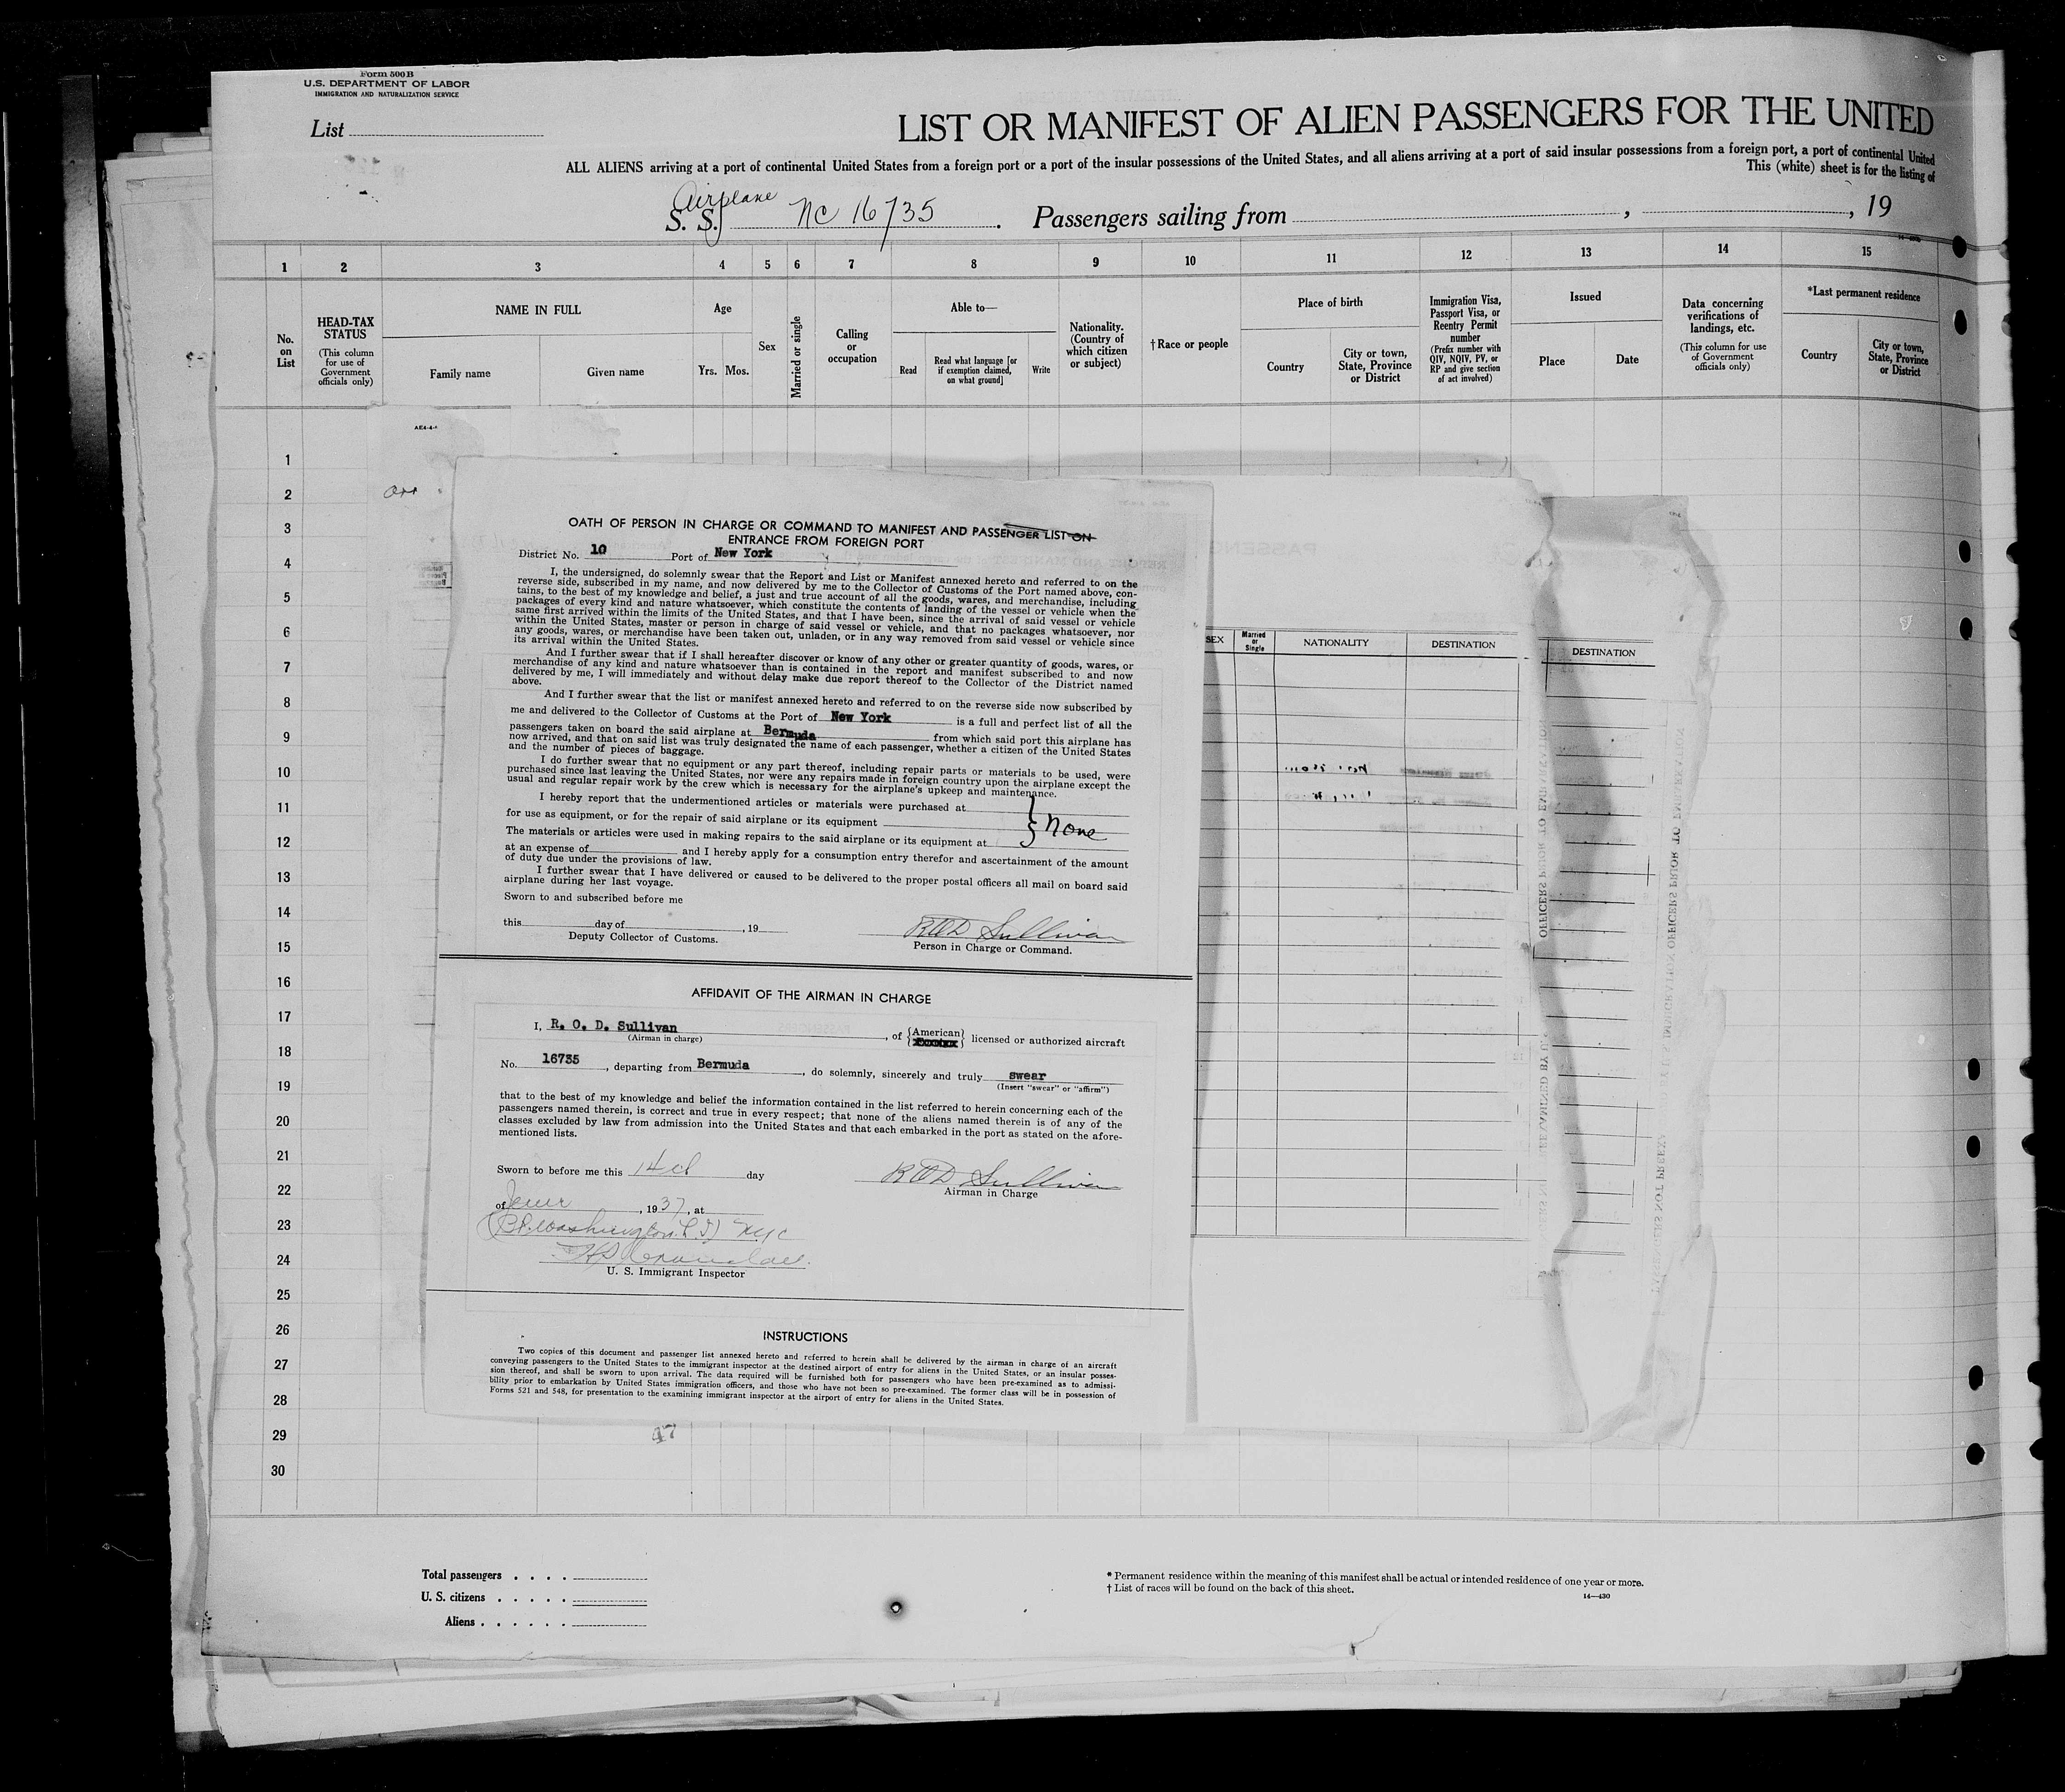 Form 500 B
U.S. DEPARTMENT OF LABOR
IMMIGRATION AND NATURALIZATION SERVICE
List
LIST OR MANIFEST OF ALIEN PASSENGERS FOR THE UNITED
ALL ALIENS arriving at a port of continental United States from a foreign port or a port of the insular possessions of the United States, and all aliens arriving at a port of said insular possessions from a foreign port, a port of continental United
This (white) sheet is for the listing of
Airplane
S. S. NC 16735. Passengers sailing from , , 19
1 2 3 4 5 6 7 8 9 10 11 12 13 14 15
No. on List
HEAD-TAX STATUS
(This column for use of Government officials only)
NAME IN FULL
Family name
Given name
Age
Yrs. Mos.
Sex
Married or single
Calling or occupation
Able to—
Read
Read what language [or if exemption claimed, on what ground]
Write
Nationality. (Country of which citizen or subject)
†Race or people
Place of birth
Country
City or town, State, Province or District
Immigration Visa, Passport Visa, or Reentry Permit number
(Prefix number with QIV, NQIV, PV, or RP and give section of act involved)
Issued
Place
Date
Data concerning verifications of landings, etc.
(This column for use of Government officials only)
*Last permanent residence
Country
City or town, State, Province or District
1
2
3
4
5
6
7
8
9
10
11
12
13
14
15
16
17
18
19
20
21
22
23
24
25
26
27
28
29
30
OATH OF PERSON IN CHARGE OR COMMAND TO MANIFEST AND PASSENGER LIST ON
ENTRANCE FROM FOREIGN PORT
District No. 10 Port of New York
I, the undersigned, do solemnly swear that the Report and List or Manifest annexed hereto and referred to on the
reverse side, subscribed in my name, and now delivered by me to the Collector of Customs of the Port named above, con-
tains, to the best of my knowledge and belief, a just and true account of all the goods, wares, and merchandise, including
packages of every kind and nature whatsoever, which constitute the contents of landing of the vessel or vehicle when the
same first arrived within the limits of the United States, and that I have been, since the arrival of said vessel or vehicle
within the United States, master or person in charge of said vessel or vehicle, and that no packages whatsoever, nor
any goods, wares, or merchandise have been taken out, unladen, or in any way removed from said vessel or vehicle since
its arrival within the United States.
And I further swear that if I shall hereafter discover or know of any other or greater quantity of goods, wares, or
merchandise of any kind and nature whatsoever than is contained in the report and manifest subscribed to and now
delivered by me, I will immediately and without delay make due report thereof to the Collector of the District named
above.
And I further swear that the list or manifest annexed hereto and referred to on the reverse side now subscribed by
me and delivered to the Collector of Customs at the Port of New York is a full and perfect list of all the
passengers taken on board the said airplane at Bermuda from which said port this airplane has
now arrived, and that on said list was truly designated the name of each passenger, whether a citizen of the United States
and the number of pieces of baggage.
I do further swear that no equipment or any part thereof, including repair parts or materials to be used, were
purchased since last leaving the United States, nor were any repairs made in foreign country upon the airplane except the
usual and regular repair work by the crew which is necessary for the airplane's upkeep and maintenance.
I hereby report that the undermentioned articles or materials were purchased at
for use as equipment, or for the repair of said airplane or its equipment
None
The materials or articles were used in making repairs to the said airplane or its equipment at
at an expense of and I hereby apply for a consumption entry therefor and ascertainment of the amount
of duty due under the provisions of law.
I further swear that I have delivered or caused to be delivered to the proper postal officers all mail on board said
airplane during her last voyage.
Sworn to and subscribed before me
this day of , 19
ROD Sullivan
Deputy Collector of Customs.
Person in Charge or Command.
AFFIDAVIT OF THE AIRMAN IN CHARGE
I, R. O. D. Sullivan, of {American} licensed or authorized aircraft
(Airman in charge)
No. 16735, departing from Bermuda, do solemnly, sincerely and truly swear
(Insert "swear" or "affirm")
that to the best of my knowledge and belief the information contained in the list referred to herein concerning each of the
passengers named therein, is correct and true in every respect; that none of the aliens named therein is of any of the
classes excluded by law from admission into the United States and that each embarked in the port as stated on the afore-
mentioned lists.
Sworn to before me this 14th day
ROD Sullivan
Airman in Charge
of June, 1937, at
Washington L.I) NYC
U. S. Immigrant Inspector
INSTRUCTIONS
Two copies of this document and passenger list annexed hereto and referred to herein shall be delivered by the airman in charge of an aircraft
conveying passengers to the United States to the immigrant inspector at the destined airport of entry for aliens in the United States, or an insular posses-
sion thereof, and shall be sworn to upon arrival. The data required will be furnished both for passengers who have been pre-examined as to admissi-
bility prior to embarkation by United States immigration officers, and those who have not been so pre-examined. The former class will be in possession of
Forms 521 and 548, for presentation to the examining immigrant inspector at the airport of entry for aliens in the United States.
SEX
Married or Single
NATIONALITY
DESTINATION
DESTINATION
47
Total passengers
U. S. citizens
Aliens
* Permanent residence within the meaning of this manifest shall be actual or intended residence of one year or more.
† List of races will be found on the back of this sheet.
14—430